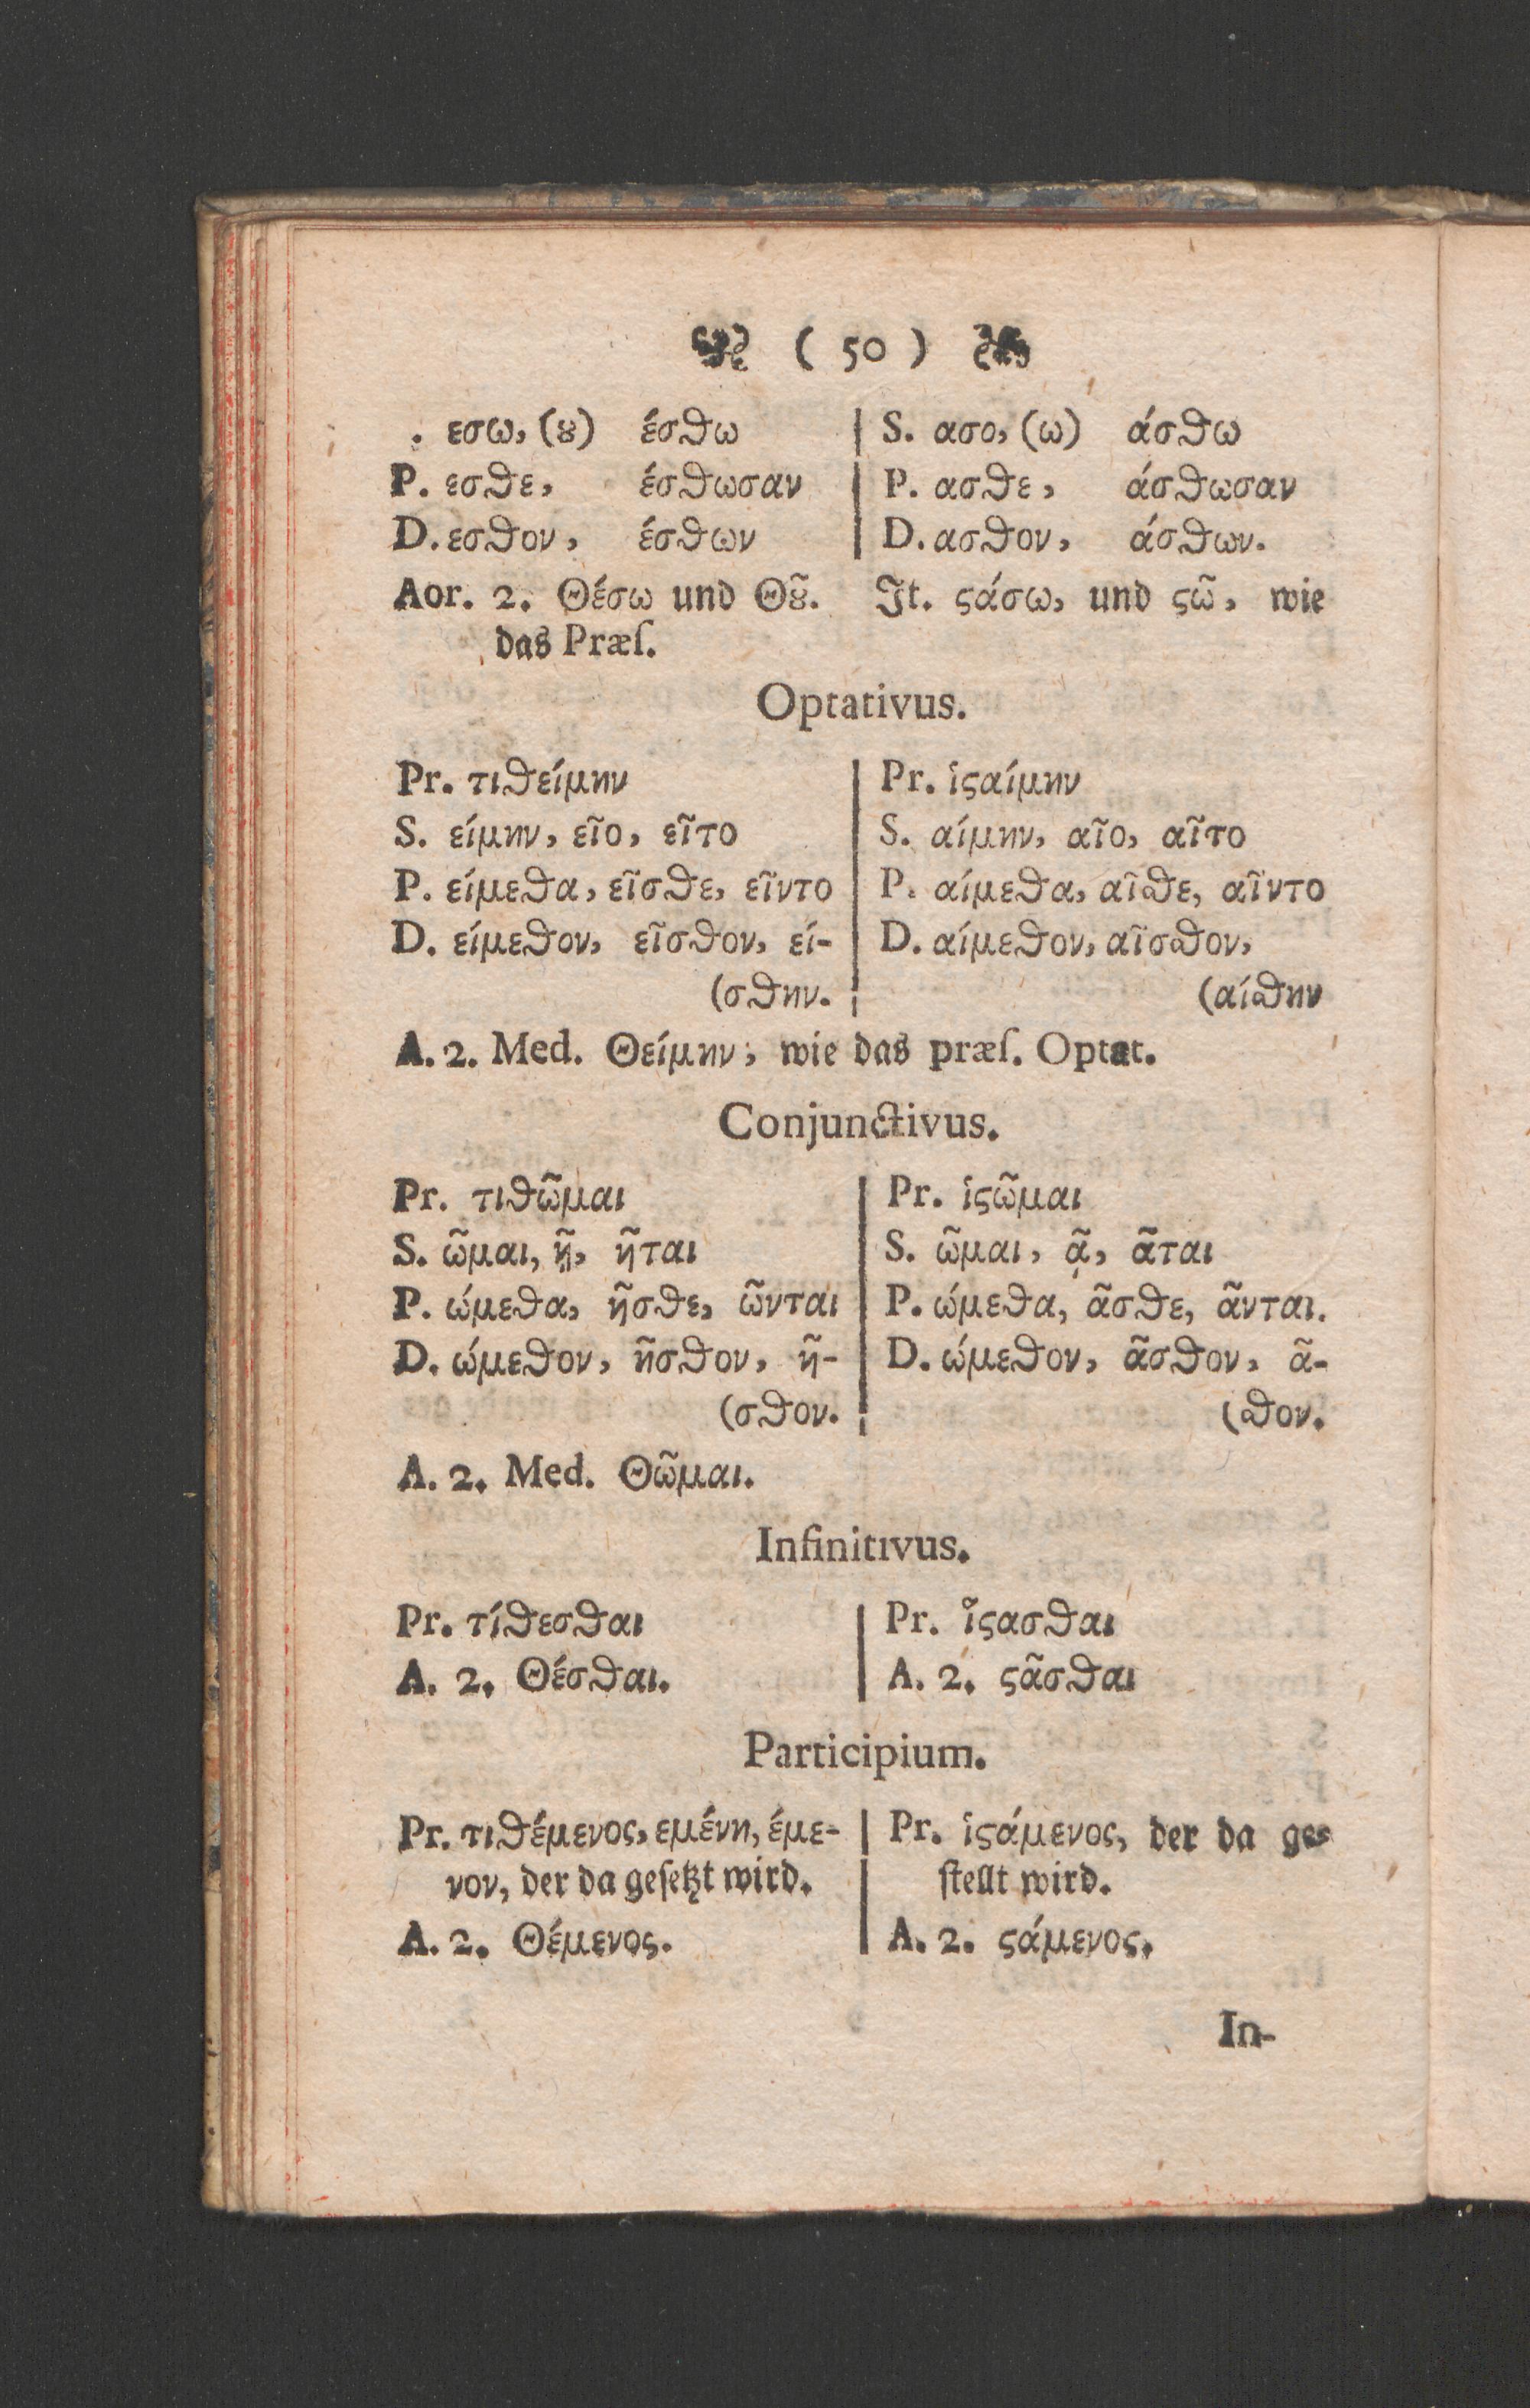 ( 50 )
. εσω, (ȣ) έσϑω | S. ασο, (ω) άσϑω
P. εσϑε, έσϑωσαν | P. ασϑε, άσϑωσαν
D. εσϑον, έσϑων | D. ασϑον, άσϑων.
Aor. 2. Θέσω und Θȣ͂. It. ϛάσω, und ϛῶ, wie
das Præſ.
Optativus.
Pr. τιϑείμην | Pr. ἱϛαίμην
S. είμην, εῖο, εῖτο | S. αίμην, αῖο, αῖτο
P. είμεϑα, εῖσϑε, εῖντο | P. αίμεϑα, αῖσϑε, αῖντο
D. είμεϑον, εῖσϑον, εί- | D. αίμεϑον, αῖσϑον,
(σϑην. | (αίσϑην
A. 2. Med. Θείμην; wie das præſ. Optat.
Conjunctivus.
Pr. τιϑῶμαι | Pr. ἱϛῶμαι
S. ῶμαι, ῇ, ῆται | S. ῶμαι, ᾷ, ᾶται
P. ώμεϑα, ῆσϑε, ῶνται | P. ώμεϑα, ᾶσϑε, ᾶνται.
D. ώμεϑον, ῆσϑον, ῆ- | D. ώμεϑον, ᾶσϑον, ᾶ-
(σϑον. | (σϑον.
A. 2. Med. Θῶμαι.
Infinitivus.
Pr. τίϑεσϑαι | Pr. ἵϛασϑαι
A. 2. Θέσϑαι. | A. 2. ϛᾶσϑαι
Participium.
Pr. τιϑέμενος, εμένη, έμε- | Pr. ἱϛάμενος, der da ge-
νον, der da geſetzt wird. | ſtellt wird.
A. 2. Θέμενος. | A. 2. ϛάμενος.
In-